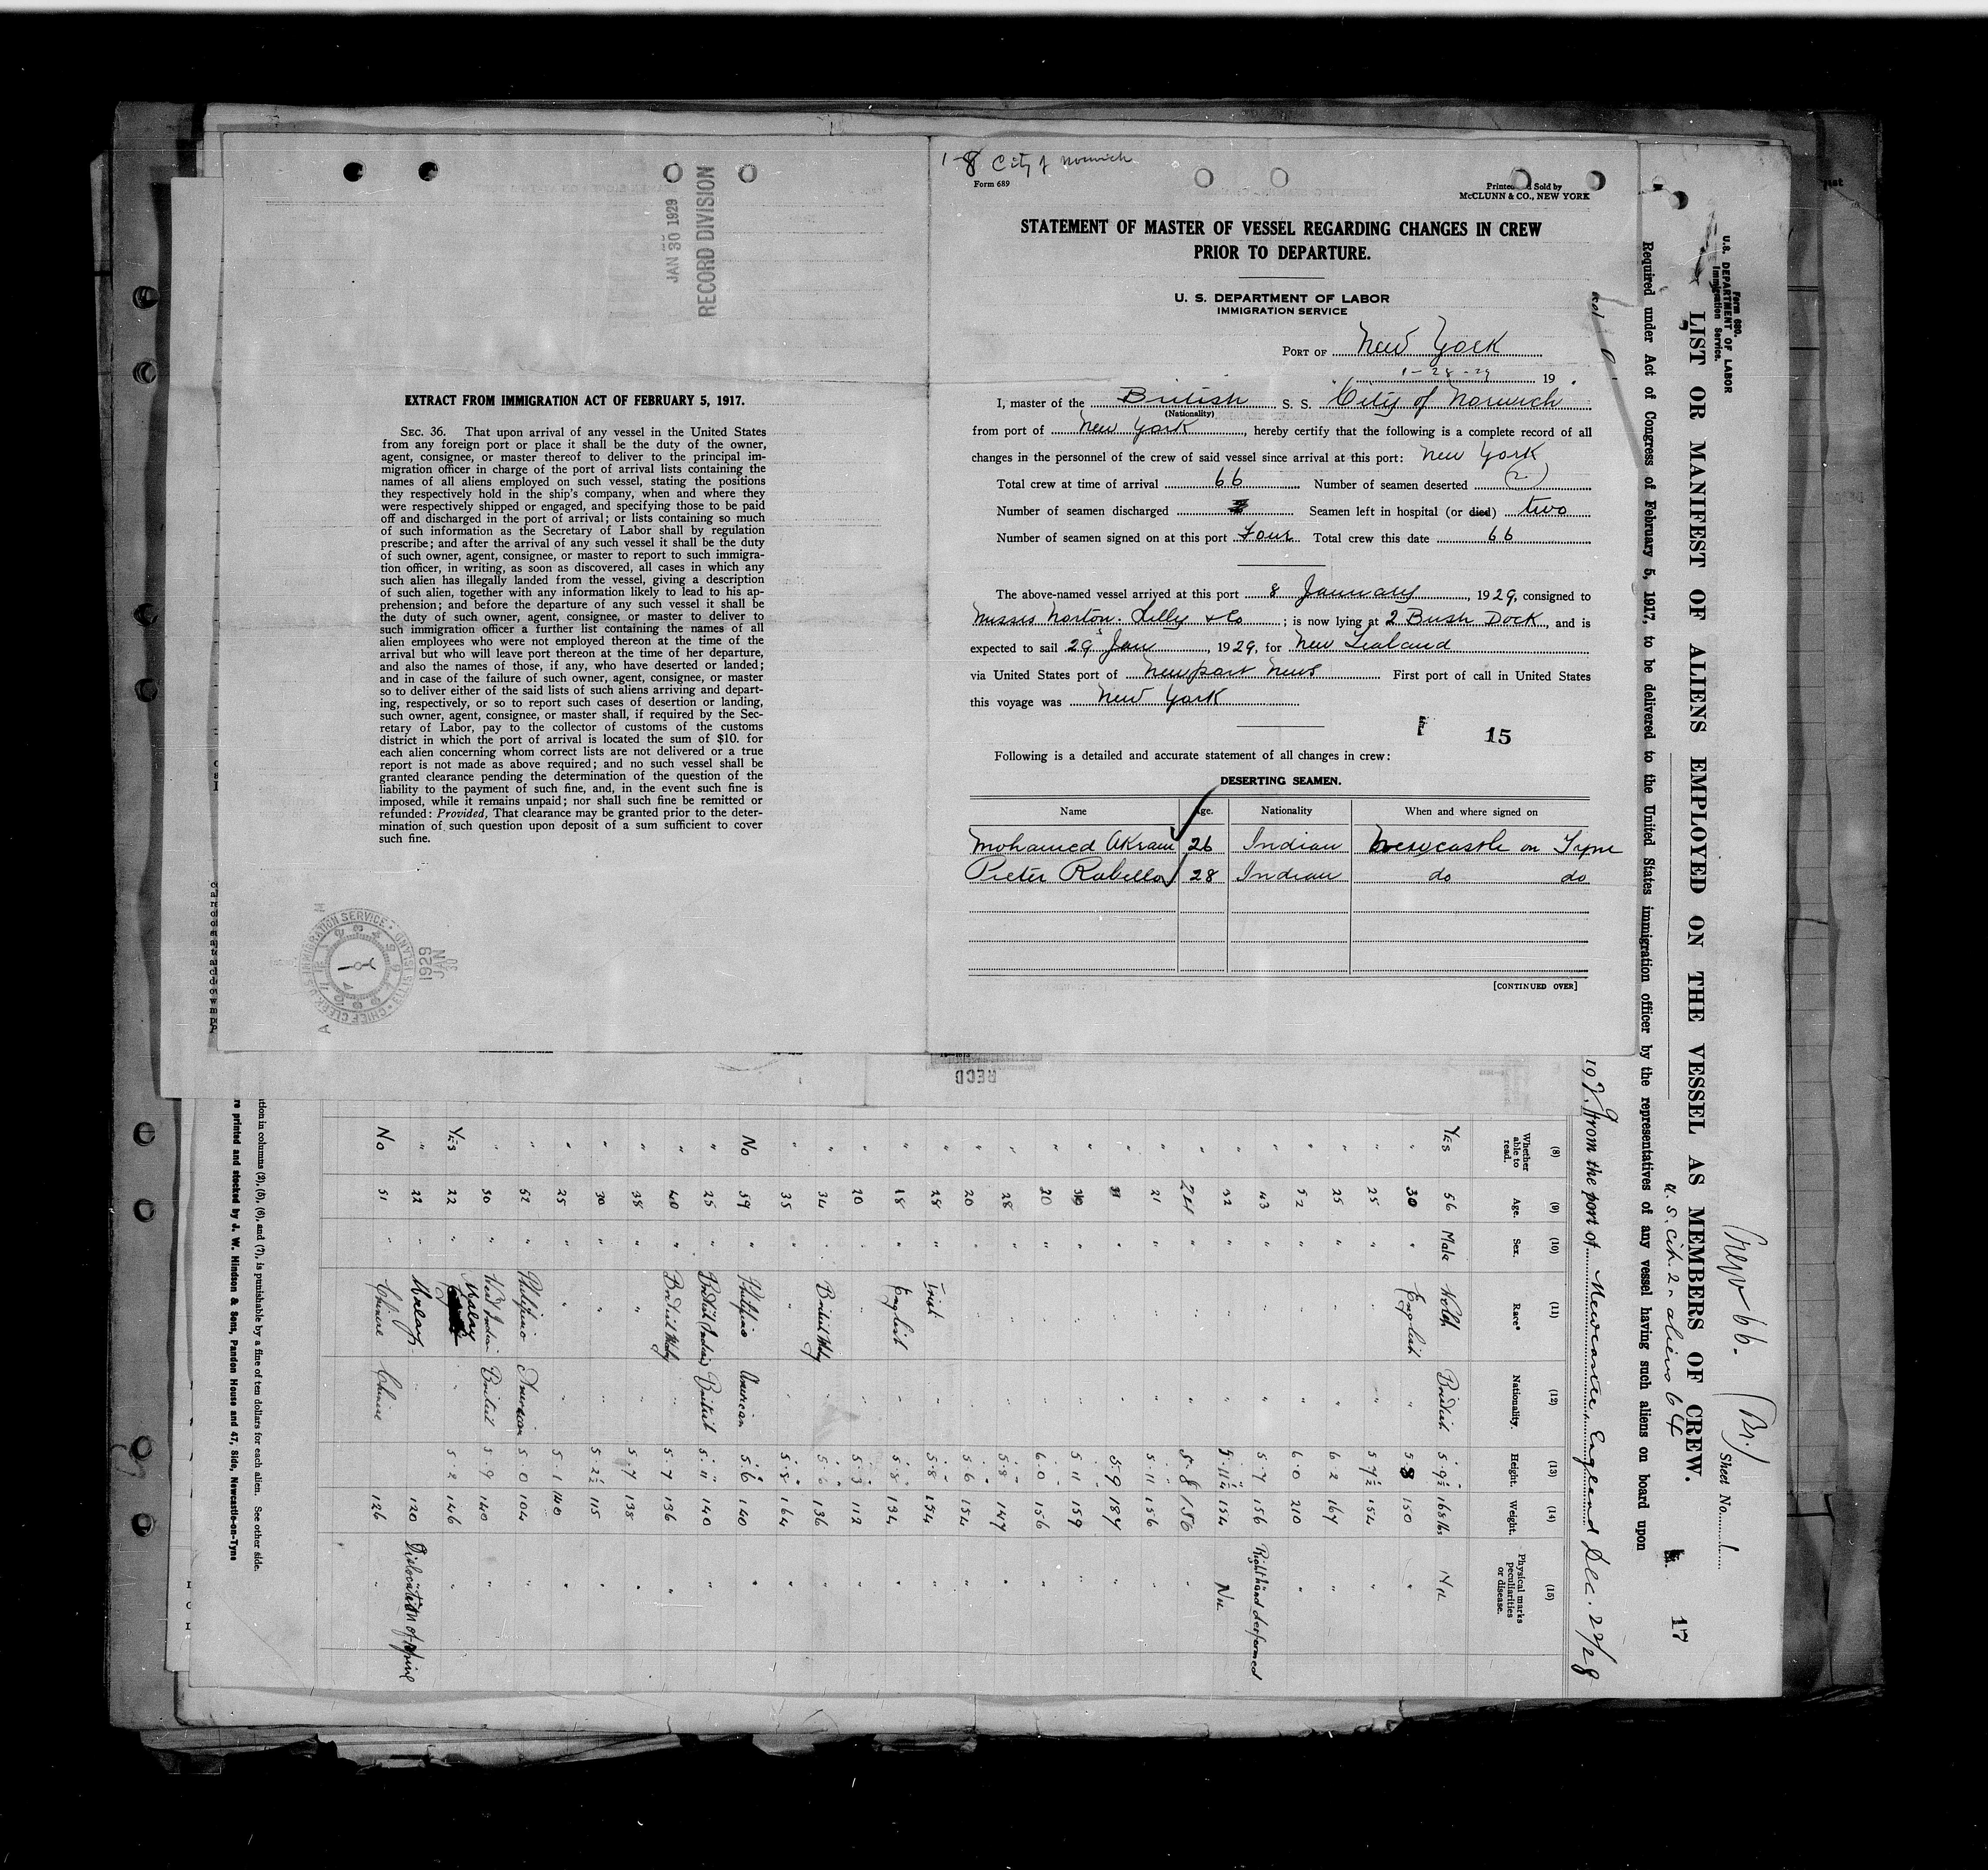 JAN 30 1929
RECORD DIVISION
EXTRACT FROM IMMIGRATION ACT OF FEBRUARY 5, 1917.
SEC. 36. That upon arrival of any vessel in the United States
from any foreign port or place it shall be the duty of the owner,
agent, consignee, or master thereof to deliver to the principal im-
migration officer in charge of the port of arrival lists containing the
names of all aliens employed on such vessel, stating the positions
they respectively hold in the ship's company, when and where they
were respectively shipped or engaged, and specifying those to be paid
off and discharged in the port of arrival; or lists containing so much
of such information as the Secretary of Labor shall by regulation
prescribe; and after the arrival of any such vessel it shall be the duty
of such owner, agent, consignee, or master to report to such immigra-
tion officer, in writing, as soon as discovered, all cases in which any
such alien has illegally landed from the vessel, giving a description
of such alien, together with any information likely to lead to his ap-
prehension; and before the departure of any such vessel it shall be
the duty of such owner, agent, consignee, or master to deliver to
such immigration officer a further list containing the names of all
alien employees who were not employed thereon at the time of the
arrival but who will leave port thereon at the time of her departure,
and also the names of those, if any, who have deserted or landed;
and in case of the failure of such owner, agent, consignee, or master
so to deliver either of the said lists of such aliens arriving and depart-
ing, respectively, or so to report such cases of desertion or landing,
such owner, agent, consignee, or master shall, if required by the Sec-
retary of Labor, pay to the collector of customs of the customs
district in which the port of arrival is located the sum of $10. for
each alien concerning whom correct lists are not delivered or a true
report is not made as above required; and no such vessel shall be
granted clearance pending the determination of the question of the
liability to the payment of such fine, and, in the event such fine is
imposed, while it remains unpaid; nor shall such fine be remitted or
refunded: Provided, That clearance may be granted prior to the deter-
mination of such question upon deposit of a sum sufficient to cover
such fine.
CHIEF CLERK U.S. IMMIGRATION SERVICE ELLIS ISLAND
1929 JAN 30
1-8 City of Norwich
Form 689
Printed Sold by
McCLUNN & CO., NEW YORK
STATEMENT OF MASTER OF VESSEL REGARDING CHANGES IN CREW
PRIOR TO DEPARTURE.
U. S. DEPARTMENT OF LABOR
IMMIGRATION SERVICE
PORT OF New York
1-28-29 19
I, master of the British S. S. City of Norwich
(Nationality)
from port of New York, hereby certify that the following is a complete record of all
changes in the personnel of the crew of said vessel since arrival at this port: New York
Total crew at time of arrival 66 Number of seamen deserted (2)
Number of seamen discharged Seamen left in hospital (or died) two
Number of seamen signed on at this port Four Total crew this date 66
The above-named vessel arrived at this port 8 January, 1929, consigned to
Messrs Norton. Lilly & Co; is now lying at 2 Bush Dock, and is
expected to sail 29 Jan, 1929, for New Zealand
via United States port of Newport News First port of call in United States
this voyage was New York
15
Following is a detailed and accurate statement of all changes in crew:
DESERTING SEAMEN.
Name Age. Nationality When and where signed on
Mohamed Akram 26 Indian Newcastle on Tyne
Pieter Rabello 28 Indian do do
[CONTINUED OVER]
RECD
Form 680.
U.S. DEPARTMENT OF LABOR
Immigration Service.
Sheet No. 1
LIST OR MANIFEST OF ALIENS EMPLOYED ON THE VESSEL AS MEMBERS OF CREW.
17
U.S. Cit. 2 aliens 64
Required under Act of Congress of February 5, 1917, to be delivered to the United States immigration officer by the representatives of any vessel having such aliens on board upon
1929 from the port of Newcastle, England Dec. 22/28
(8) (9) (10) (11) (12) (13) (14) (15)
Whether able to read. Age. Sex. Race* Nationality. Height. Weight. Physical marks peculiarities or disease.
YES 56 Male Welsh British 5·9½ 168 lbs NIL
" 30 " English " 5·8 150 "
" 25 " " " 5·7½ 154 "
" 25 " " " 6·2 167 "
" 52 " " " 6·0 210 "
" 43 " " " 5·7 156 Right hand deformed
" 32 " " " 5·11¼ 154 NIL
" 24 " " " 5·8 156 "
" 21 " " " 5·11 156 "
" 31 " " " 5·9 187 "
" 30 " " " 5·11 159 "
" 20 " " " 6·0 156 "
" 28 " " " 5·8 147 "
" 20 " " " 5·6 154 "
" 28 " Irish " 5·8 154 "
" 18 " English " 5·8 134 "
" 20 " " " 5·3 112 "
" 34 " British W Indy " 5·6 136 "
" 35 " " " 5·8 164 "
No 59 " Philipino American 5·6 140 "
" 25 " British Indian British 5·11 140 "
" 40 " British W Indy " 5·7 136 "
" 38 " " " 5·7 138 "
" 30 " " " 5·2½ 115 "
" 25 " " " 5·1 140 "
" 52 " Philipino American 5·0 104 "
" 50 " West Indian British 5·9 140 "
YES 22 " Malay " 5·2 146 "
" 22 " Malay " 120 Dislocation of spine
No 51 " Chinese Chinese 126 "
tion in columns (2), (5), (6), and (7), is punishable by a fine of ten dollars for each alien. See other side.
re printed and stocked by J. W. Hindson & Sons, Pandon House and 47, Side, Newcastle-on-Tyne